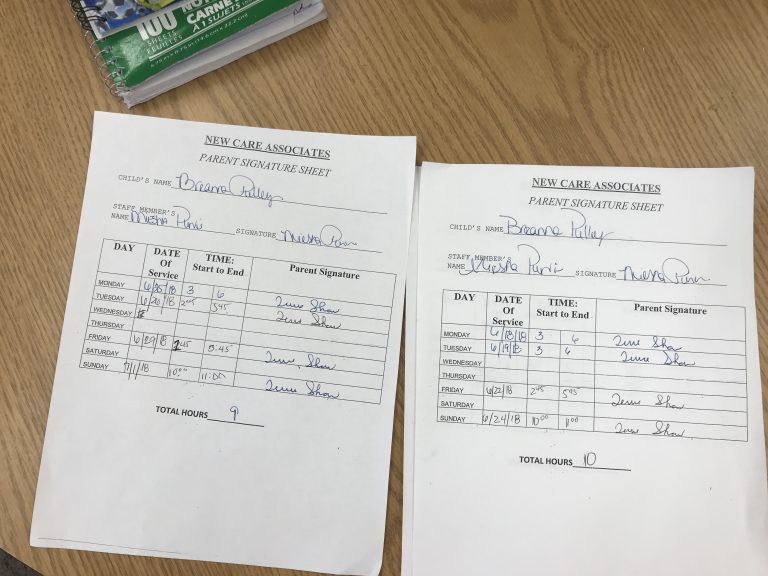 100
SHEETS
FEUILLES
CARNE
A 1 SUJETS
NEW CARE ASSOCIATES
PARENT SIGNATURE SHEET
CHILD'S NAME Breanna Pulley
STAFF MEMBER'S
NAME Miesha SIGNATURE Miesha
DAY DATE Of Service TIME: Start to End Parent Signature
MONDAY 6/25/18 3 6 Terrie Shaw
TUESDAY 6/26/18 2:45 5:45 Terrie Shaw
WEDNESDAY
THURSDAY
FRIDAY 6/29/18 2:45 5:45 Terrie Shaw
SATURDAY
SUNDAY 7/1/18 10:00 11:00 Terrie Shaw
TOTAL HOURS 9
NEW CARE ASSOCIATES
PARENT SIGNATURE SHEET
CHILD'S NAME Breanna Pulley
STAFF MEMBER'S
NAME Miesha SIGNATURE Miesha
DAY DATE Of Service TIME: Start to End Parent Signature
MONDAY 6/18/18 3 6 Terrie Shaw
TUESDAY 6/19/18 3 6 Terrie Shaw
WEDNESDAY
THURSDAY
FRIDAY 6/22/18 2:45 5:45 Terrie Shaw
SATURDAY
SUNDAY 6/24/18 10:00 11:00 Terrie Shaw
TOTAL HOURS 10